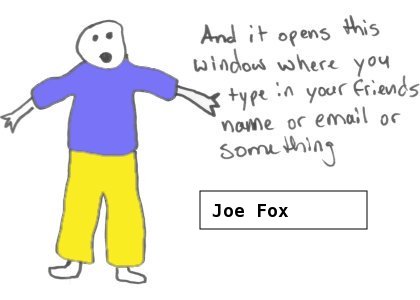 And it opens this
window where you
type in your friends
name or email or
something
Joe Fox